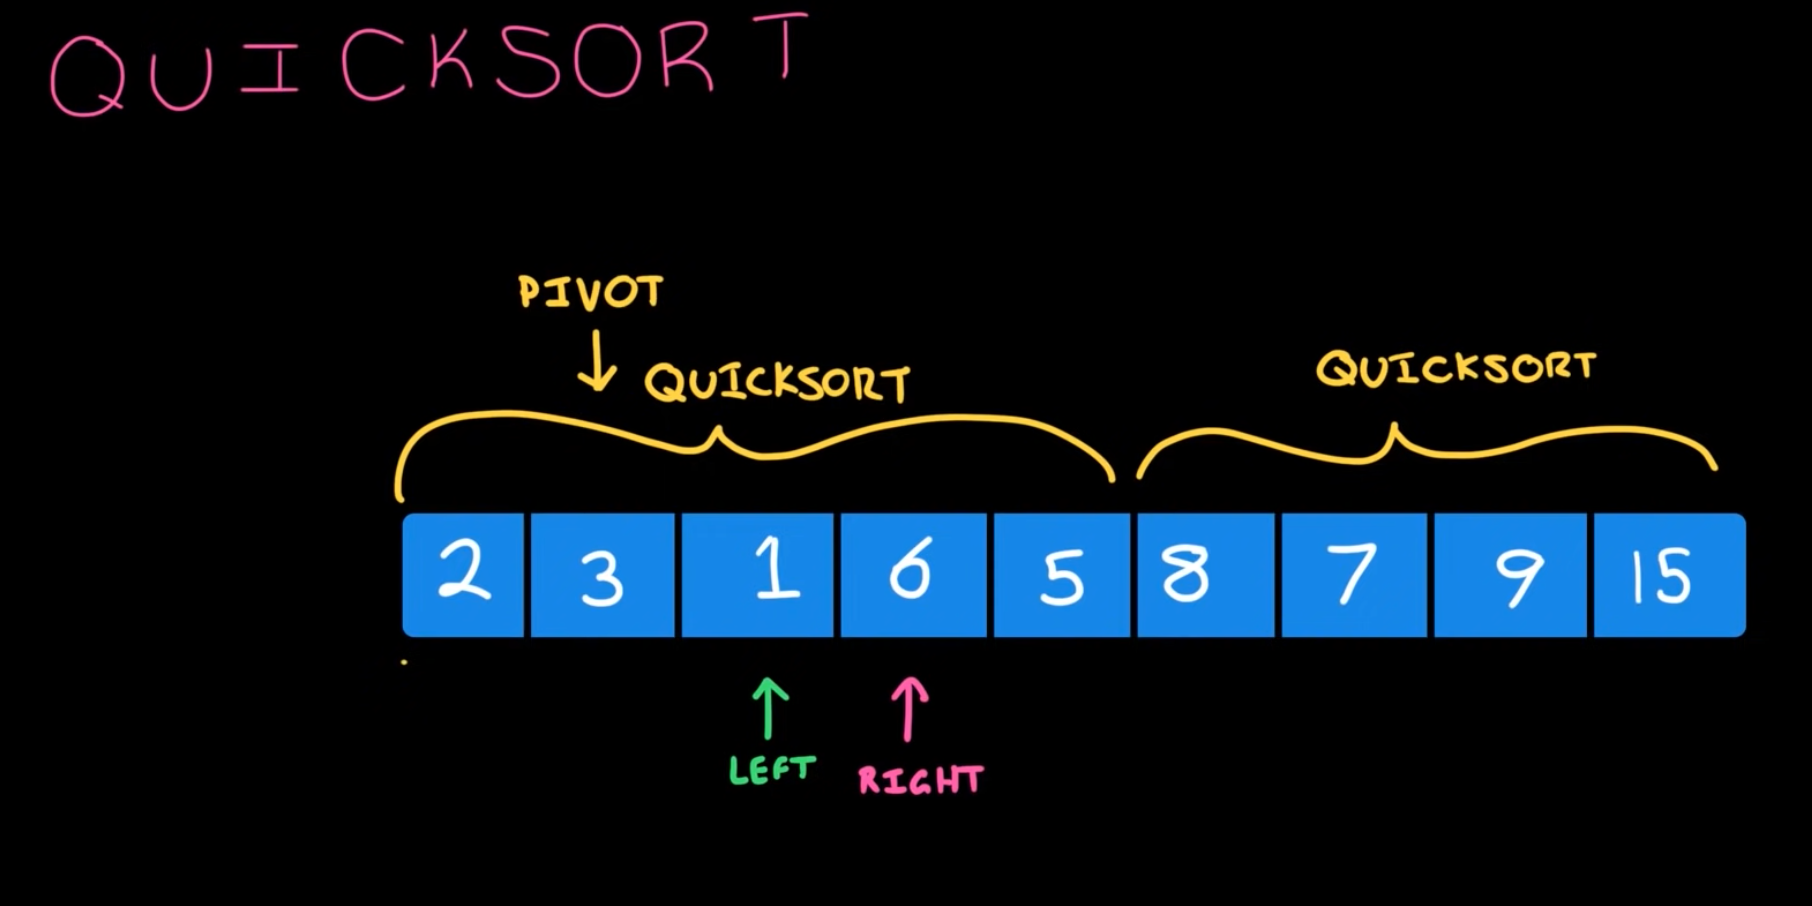 QUICKSORT
PIVOT
QUICKSORT
QUICKSORT
2 3 1 6 5 8 7 9 15
LEFT
RIGHT